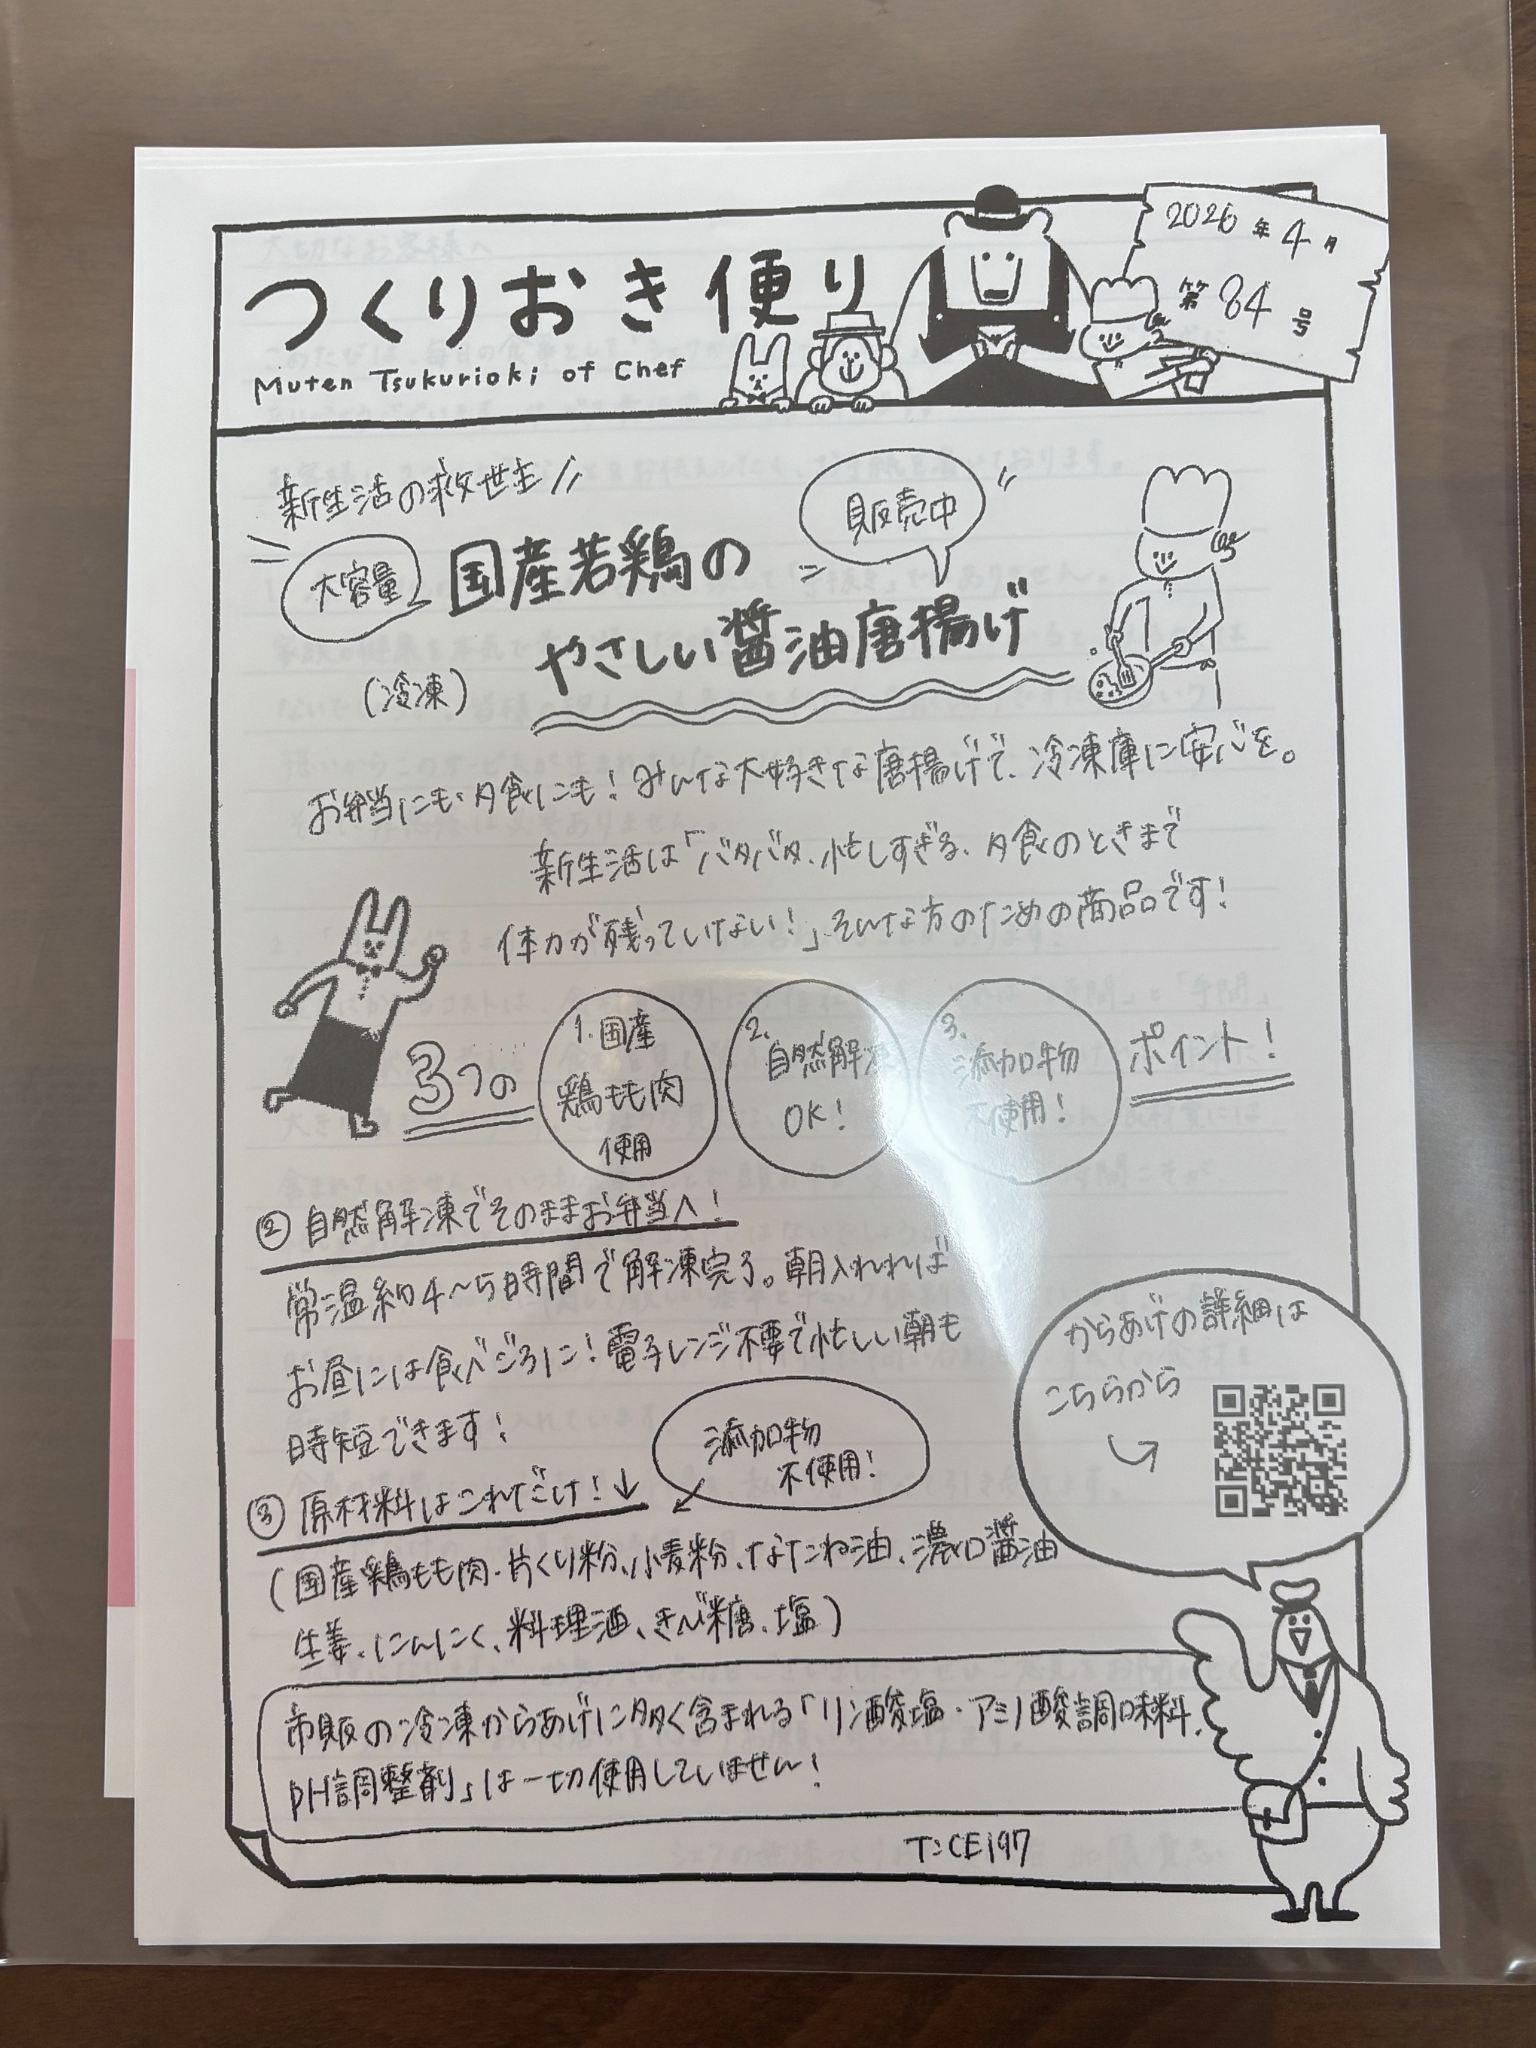 つくりおき便り
Muten Tsukurioki of Chef
2026年4月
第84号
新生活の救世主
大容量
国産若鶏の
やさしい醤油唐揚げ
(冷凍)
販売中
お弁当にも、夕食にも！みんな大好きな唐揚げで、冷凍庫に安心を。
新生活は「バタバタ、忙しすぎる、夕食のときまで
体力が残っていけない！」そんな方のための商品です！
3つの
1.国産
鶏もも肉
使用
2.
自然解凍
OK！
3.
添加物
不使用！
ポイント！
② 自然解凍でそのままお弁当へ！
常温約4〜5時間で解凍完了。朝入れれば
お昼には食べごろに！電子レンジ不要で忙しい朝も
時短できます！
③ 原材料はこれだけ！↓
添加物
不使用！
(国産鶏もも肉、片くり粉、小麦粉、なたね油、濃口醤油
生姜、にんにく、料理酒、きび糖、塩)
市販の冷凍からあげに多く含まれる「リン酸塩・アミノ酸調味料、
pH調整剤」は一切使用していません！
からあげの詳細は
こちらから
T:CE197